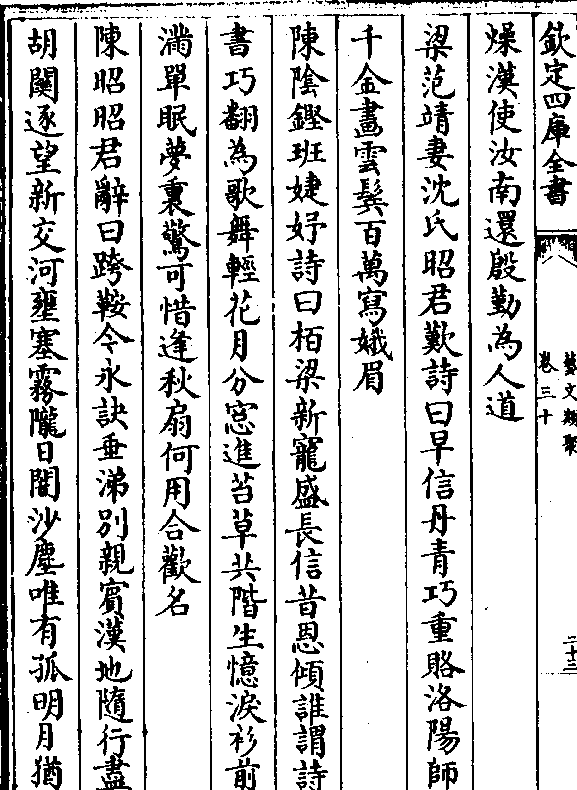 欽定四庫全書
藝文類聚
卷三十
二十三
燥漢使汝南還殷勤為人道
梁范靖妻沈氏昭君歎詩曰早信丹青巧重賂洛陽師
千金畫雲鬂百萬寫娥眉
陳陰鏗班婕妤詩曰栢梁新寵盛長信昔恩傾誰謂詩
書巧翻為歌舞輕花月分窓進苔草共階生憶淚衫前
滿單眠夢裏驚可惜逢秋扇何用合歡名
陳昭昭君辭曰跨鞍今永訣垂涕別親賓漢地隨行盡
胡關逐望新交河壅塞霧隴日闇沙塵唯有孤明月猶